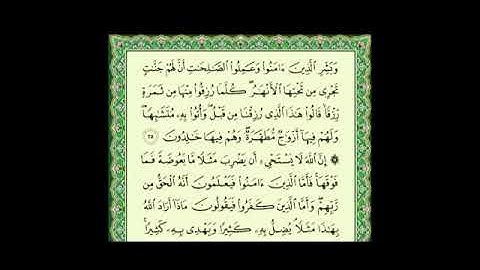 وَبَشِّرِ ٱلَّذِينَ ءَامَنُوا۟ وَعَمِلُوا۟ ٱلصَّٰلِحَٰتِ أَنَّ لَهُمْ جَنَّٰتٍ
تَجْرِى مِن تَحْتِهَا ٱلْأَنْهَٰرُ ۖ كُلَّمَا رُزِقُوا۟ مِنْهَا مِن ثَمَرَةٍ
رِّزْقًا ۙ قَالُوا۟ هَٰذَا ٱلَّذِى رُزِقْنَا مِن قَبْلُ ۖ وَأُتُوا۟ بِهِۦ مُتَشَٰبِهًا ۖ
وَلَهُمْ فِيهَآ أَزْوَٰجٌ مُّطَهَّرَةٌ ۖ وَهُمْ فِيهَا خَٰلِدُونَ ٢٥
۞ إِنَّ ٱللَّهَ لَا يَسْتَحْىِۦٓ أَن يَضْرِبَ مَثَلًا مَّا بَعُوضَةً فَمَا
فَوْقَهَا ۚ فَأَمَّا ٱلَّذِينَ ءَامَنُوا۟ فَيَعْلَمُونَ أَنَّهُ ٱلْحَقُّ مِن
رَّبِّهِمْ ۖ وَأَمَّا ٱلَّذِينَ كَفَرُوا۟ فَيَقُولُونَ مَاذَآ أَرَادَ ٱللَّهُ
بِهَٰذَا مَثَلًا ۘ يُضِلُّ بِهِۦ كَثِيرًا وَيَهْدِى بِهِۦ كَثِيرًا ۚ